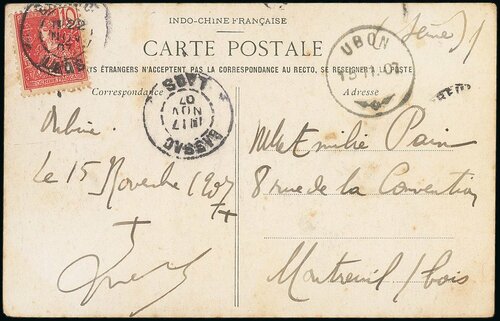 INDO-CHINE FRANÇAISE
CARTE POSTALE
PAYS ÉTRANGERS N'ACCEPTENT PAS LA CORRESPONDANCE AU RECTO, SE RENSEIGNER À LA POSTE
Correspondance
Adresse
(Seine)
10
LAOS
UBON
07
BASSAC
17
NOV
07
LAOS
le 15 Novembre 1907
Mlle Emilie Pain
8 rue de la Convention
Montreuil s/bois